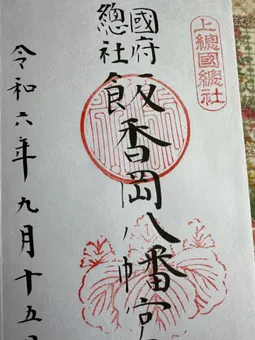 上總國總社
國府
總社
飯香岡八幡宮
令和六年九月十五日